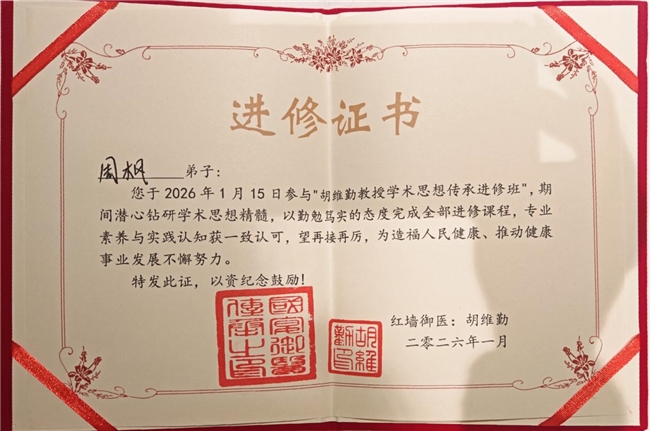 进修证书
周枫 弟子:
您于2026年1月15日参与"胡维勤教授学术思想传承进修班",期
间潜心钻研学术思想精髓,以勤勉笃实的态度完成全部进修课程,专业
素养与实践认知获一致认可,望再接再厉,为造福人民健康、推动健康
事业发展不懈努力。
特发此证,以资纪念鼓励!
红墙御医:胡维勤
二零二六年一月
胡維勤印